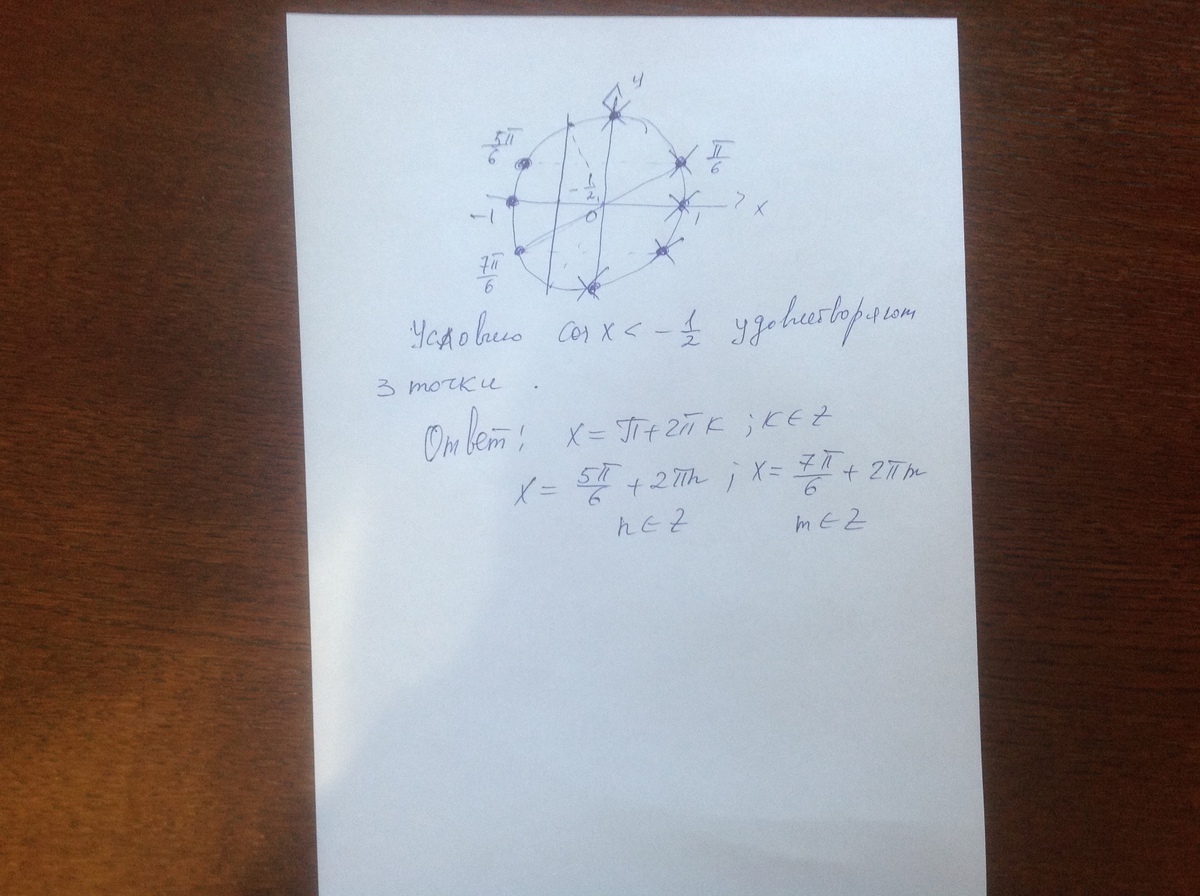 y
5π/6
π/6
-1/2
-1
0
1
x
7π/6
Условию cos x < - 1/2 удовлетворяют
3 точки .
Ответ: x = π + 2πk ; k ∈ Z
x = 5π/6 + 2πn ; x = 7π/6 + 2πm
n ∈ Z m ∈ Z